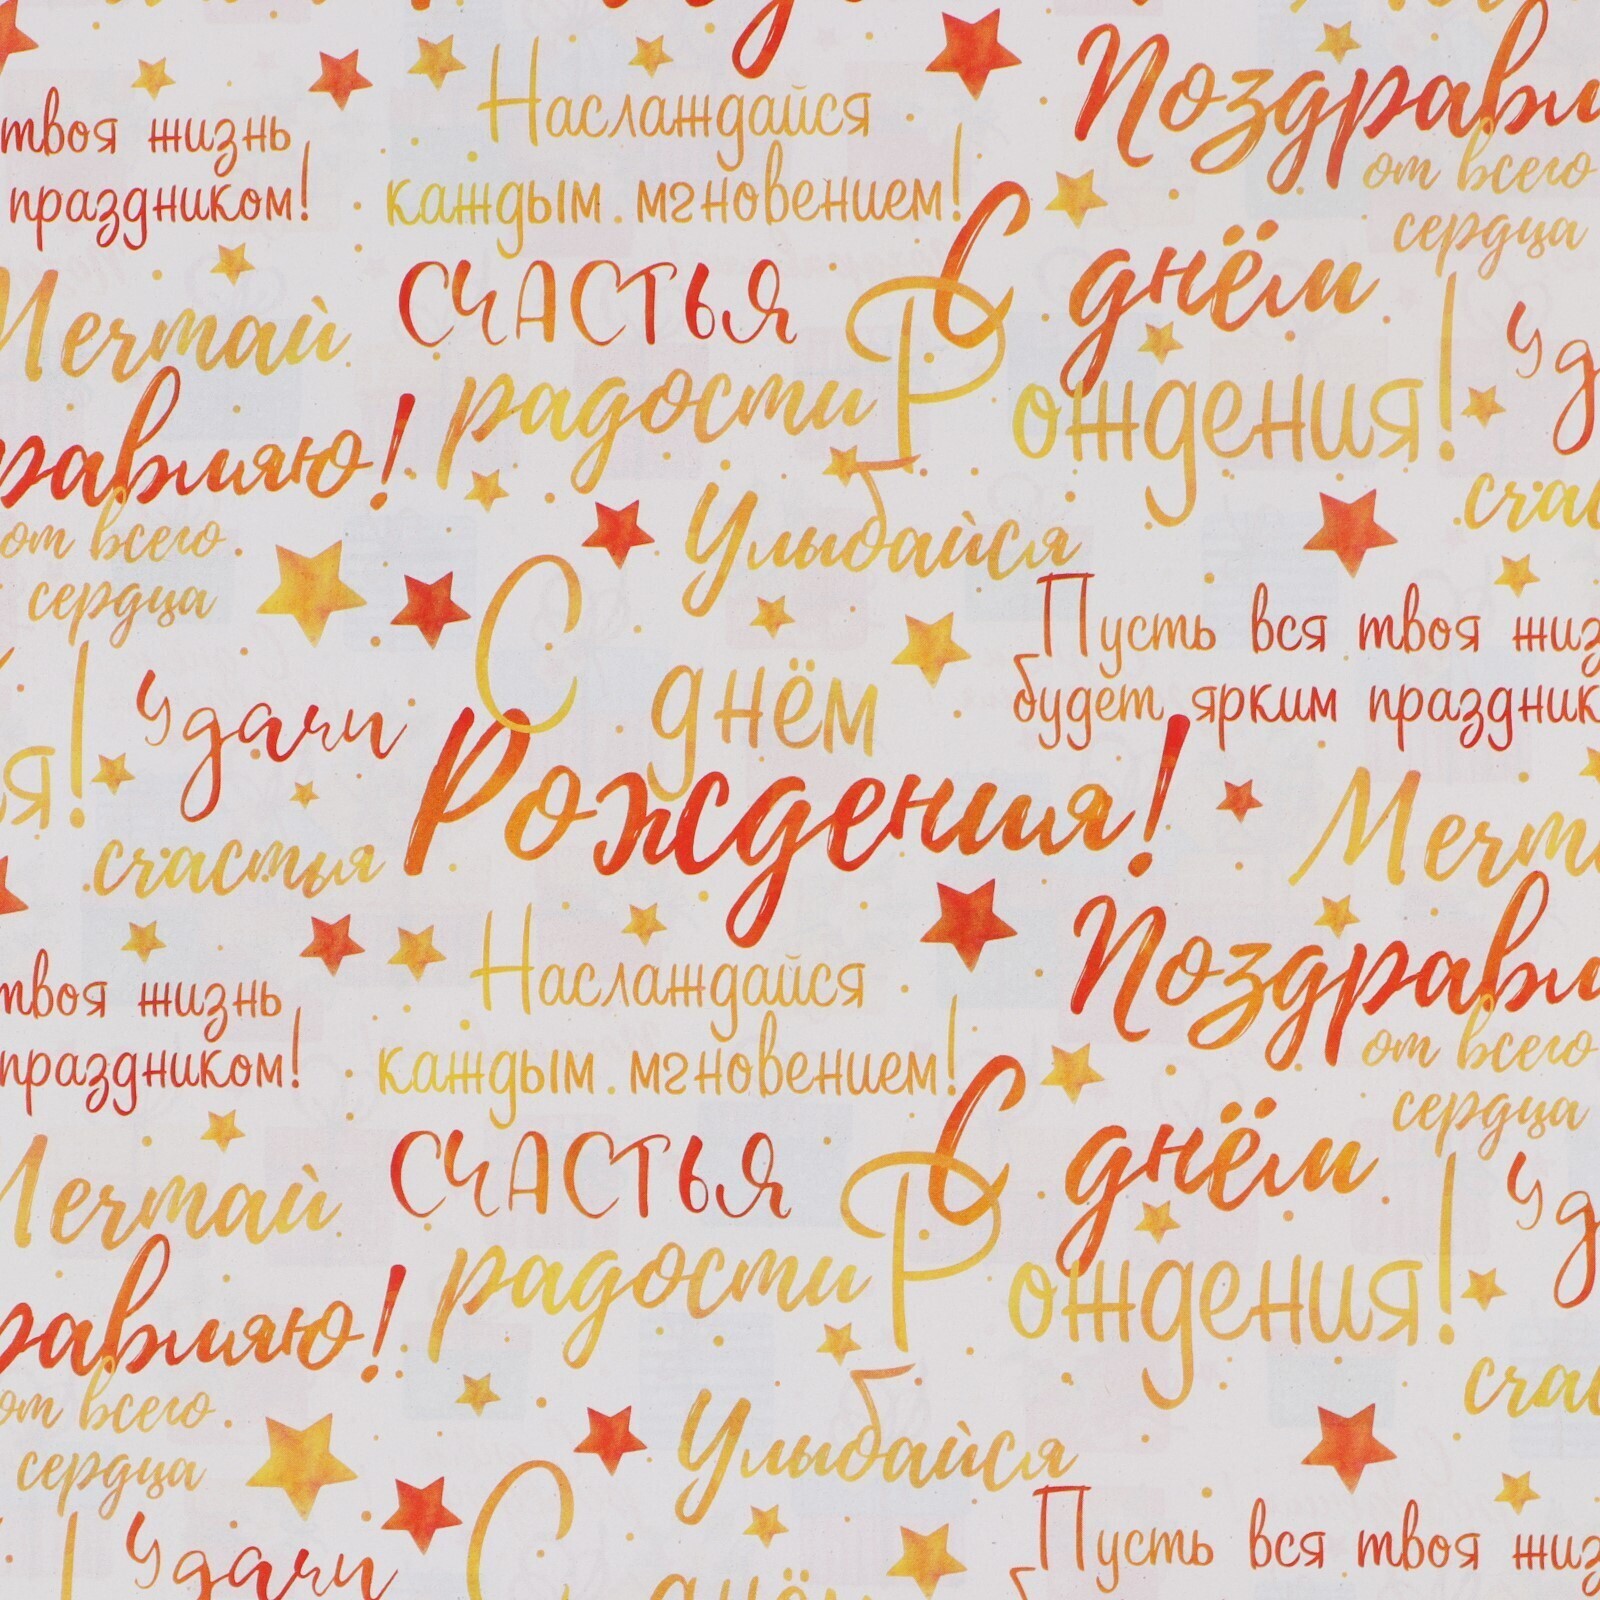 твоя жизнь
праздником!
Наслаждайся
каждым мгновением!
Поздравл
от всего
сердца
Мечтай
СЧАСТЬЯ
радости
С днём
Рождения!
Уд
равляю!
от всего
сердца
Улыбайся
счас
Пусть вся твоя жиз
будет ярким праздник
я!
Удачи
счастья
С днём
Рождения!
Мечт
твоя жизнь
праздником!
Наслаждайся
каждым мгновением!
Поздравл
от всего
сердца
Мечтай
СЧАСТЬЯ
радости
С днём
Рождения!
Уд
равляю!
от всего
сердца
Улыбайся
счас
Пусть вся твоя жиз
Удачи
С днём